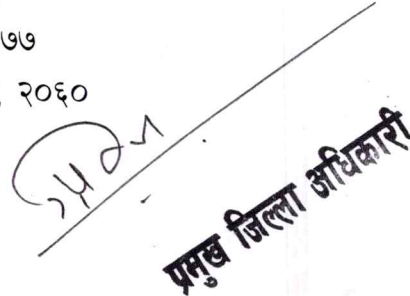 ७७
२०६०
प्रमुख जिल्ला अधिकारी